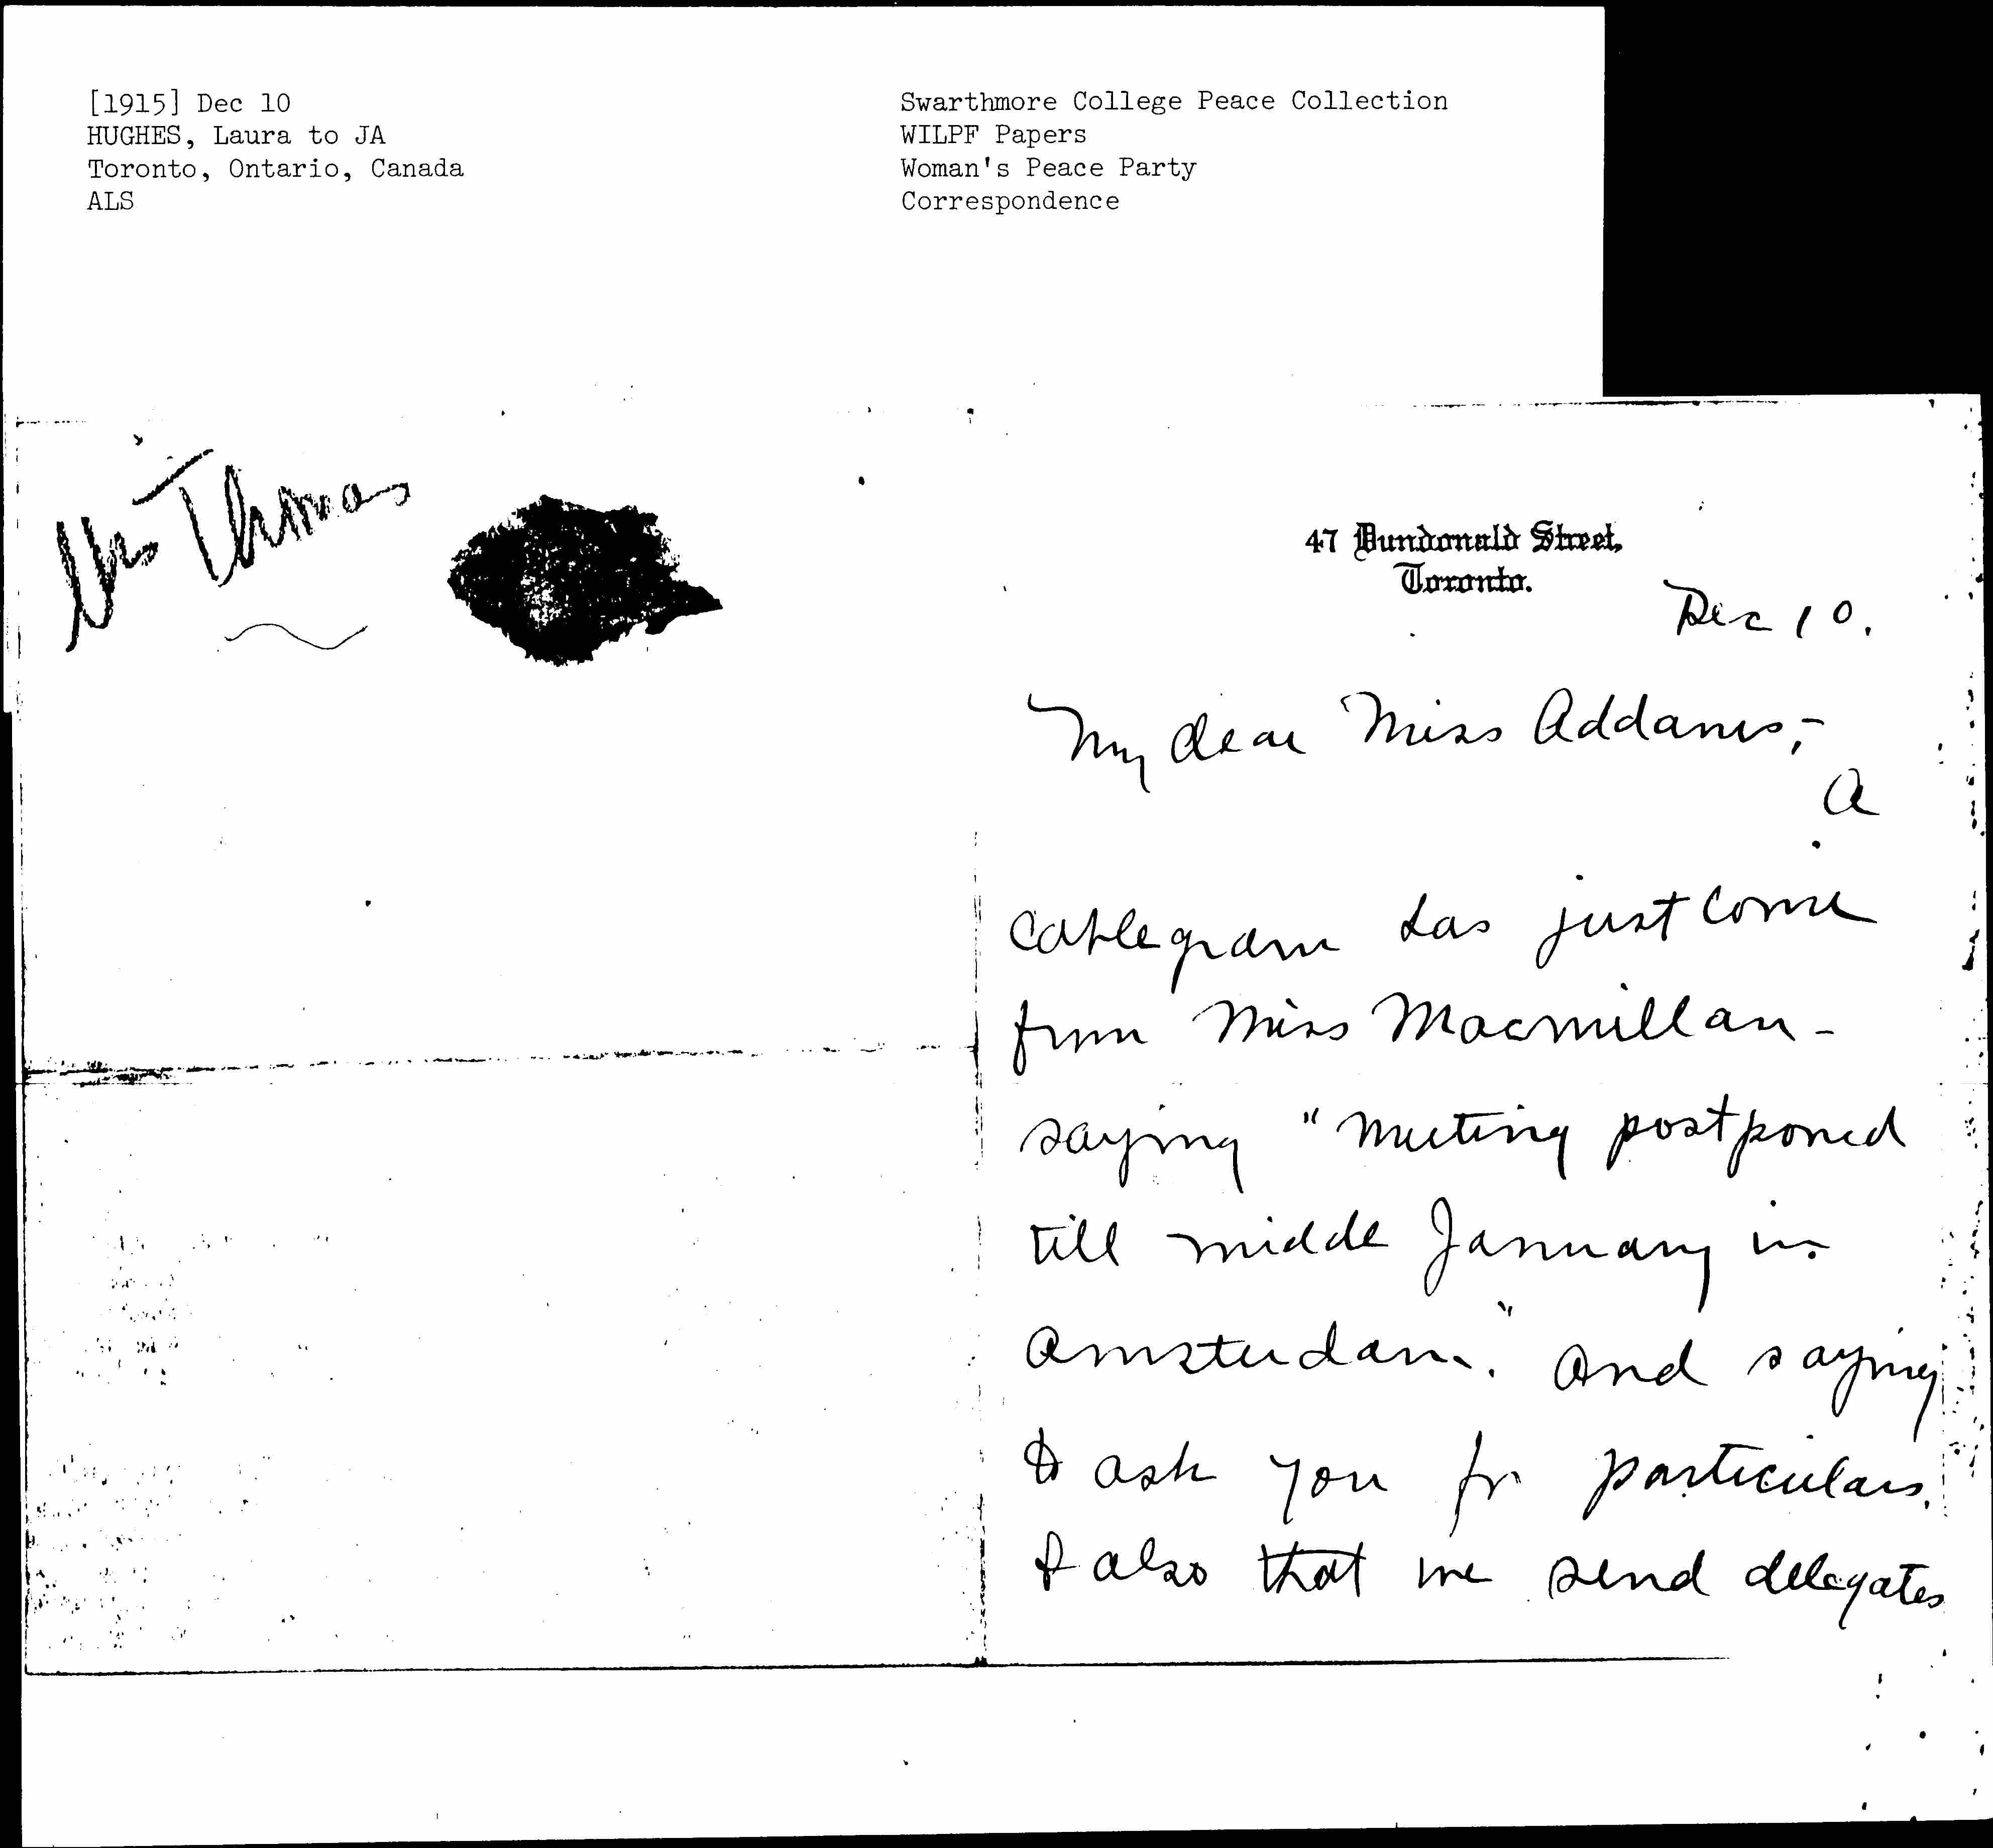 [1915] Dec 10
HUGHES, Laura to JA
Toronto, Ontario, Canada
ALS
Swarthmore College Peace Collection
WILPF Papers
Woman's Peace Party
Correspondence
Mrs Thomas
47 Dundonald Street,
Toronto.
Dec 10.
My dear Miss Addams,-
A
cablegram has just come
from Miss Macmillan -
saying "Meeting postponed
till midde January in
Amsterdam." And saying
to ask you for particulars.
& also that we send delegates